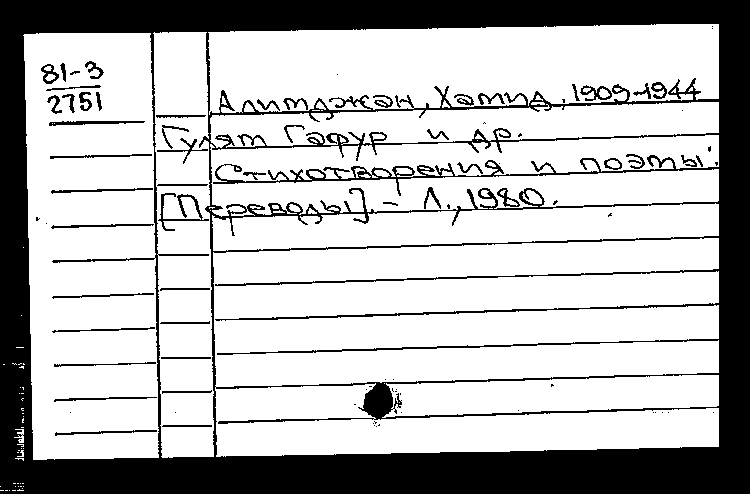 81-3
2751
Алимджан, Хамид, 1909-1944
Гулям Гафур и др.
Стихотворения и поэмы.
[Переводы]. - Л., 1980.